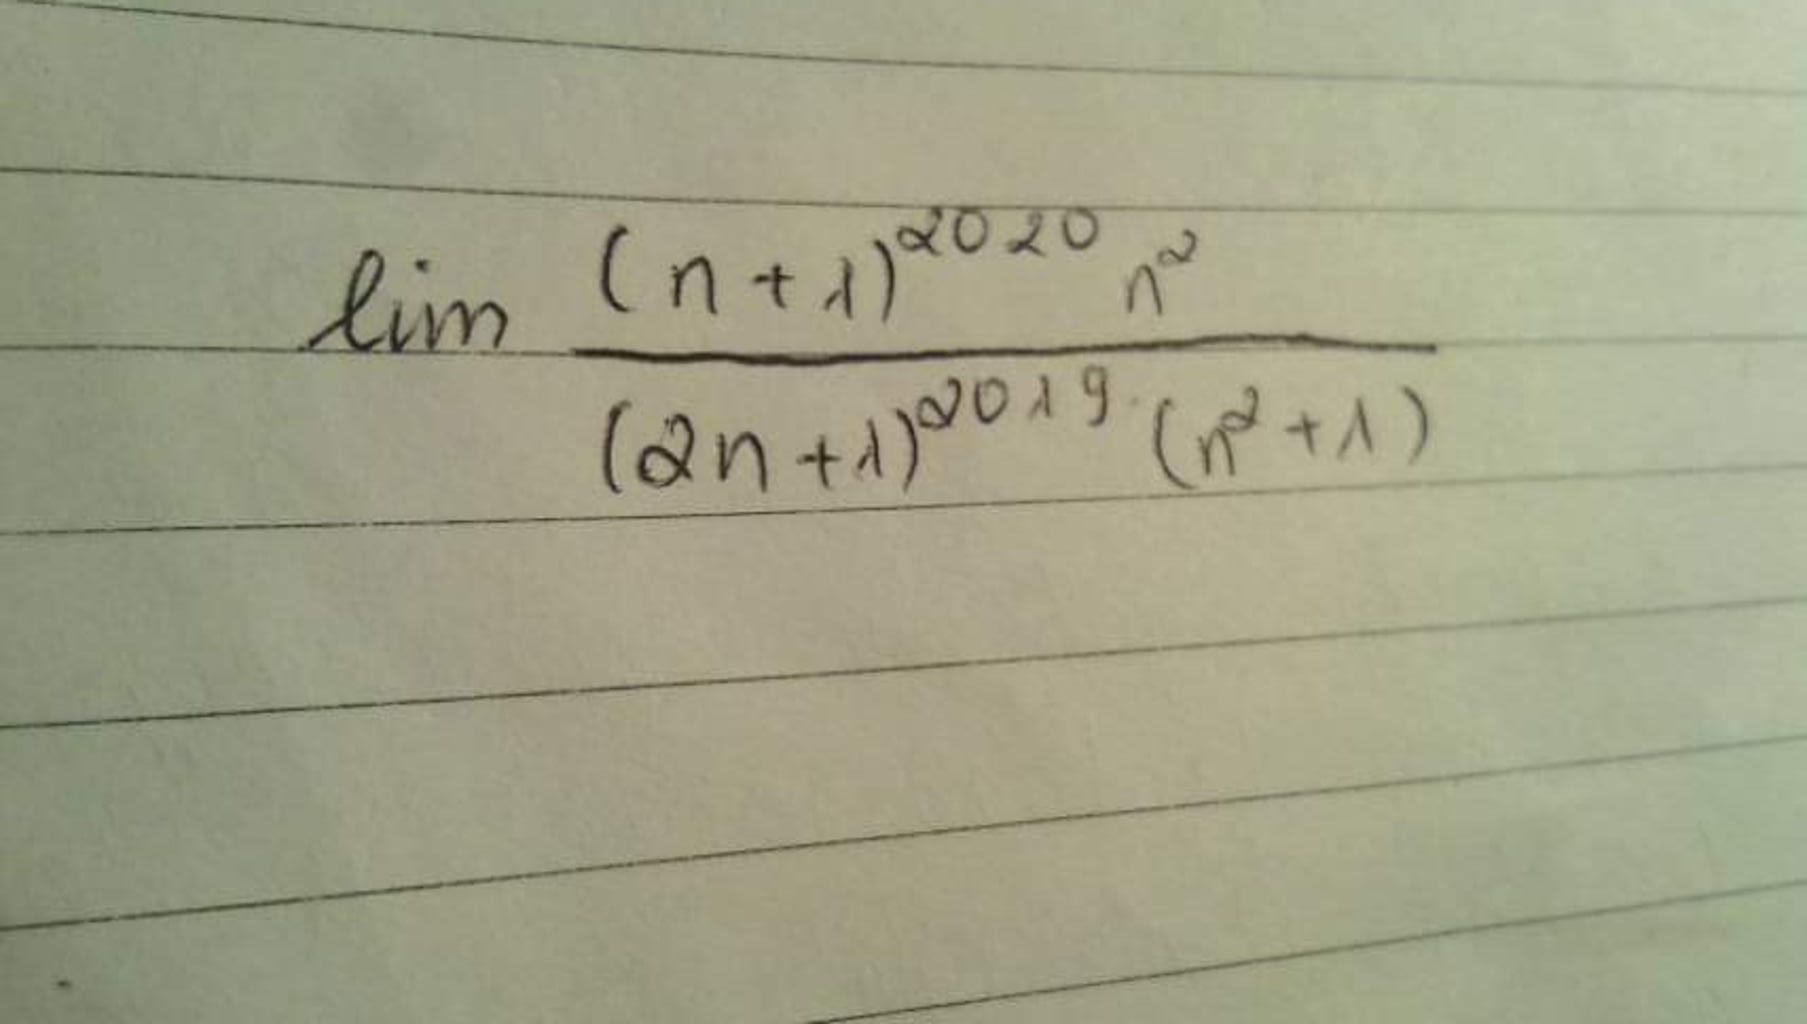 lim \frac{(n+1)^{2020} n^2}{(2n+1)^{2019} \cdot (n^2+1)}